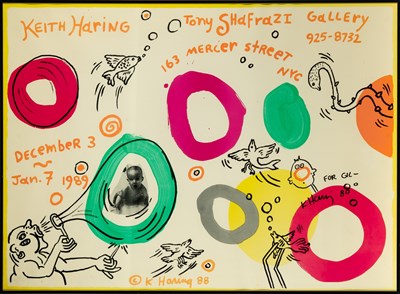 KEITH HARING
TONY SHAFRAZI GALLERY
925-8732
163 MERCER STREET
NYC
DECEMBER 3
~
Jan. 7 1989
FOR GIL-
K Haring 88
© K Haring 88